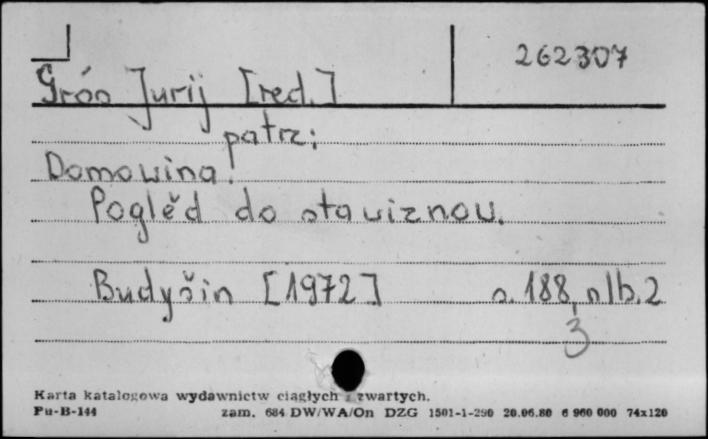 262307
Grós Jurij [red.]
patrz:
Domowina.
Poglěd do stawiznow.
Budyšin [1972] s. 188, nlb. 2
3
Karta katalogowa wydawnictw ciągłych i zwartych.
Pu-B-144 zam. 684 DW/WA/On DZG 1501-1-290 20.06.80 6 960 000 74x120